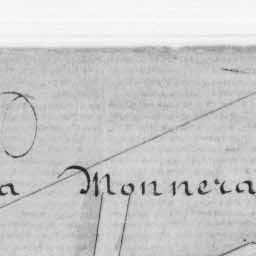 a Monnera